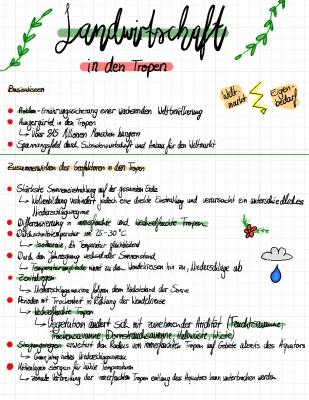 Landwirtschaft
in den Tropen
Basiswissen
Welt-
markt
Eigen-
bedarf
Problem - Ernährungssicherung einer wachsenden Weltbevölkerung
Hungergürtel in den Tropen
↳ über 815 Millionen Menschen hungern
Spannungsfeld durch Subsistenzwirtschaft und Anbau für den Weltmarkt
Zusammenwirken der Geofaktoren in den Tropen
Stärkste Sonneneinstrahlung auf der gesamten Erde
↳ Wolkenbildung verhindert jedoch eine direkte Einstrahlung und verursacht ein unterschiedliches
Niederschlagsregime
Differenzierung in immerfeuchte und wechselfeuchte Tropen
Durchschnittstemperatur von 25-30°C
↳ Isothermie, da Temperatur gleichbleibend
Durch den Jahresgang wechselnder Sonnenstand
↳ Temperaturamplitude nimmt zu den Wendekreisen hin zu, Niederschläge ab
Zenitalregen
↳ Niederschlagsmaxima folgen dem Höchststand der Sonne
Perioden mit Trockenheit in Richtung der Wendekreise
↳ Wechselfeuchte Tropen
↳ Vegetation ändert sich mit zunehmender Aridität (Feuchtsavanne,
Trockensavanne, Dornstrauchsavanne, Halbwüste, Wüste)
Steigungsregen erweitert den Radius von immerfeuchten Tropen auf Gebiete abseits des Äquators
↳ Ganzjährig hohes Niederschlagsregime
Höhenlagen sorgen für kühle Temperaturen
↳ zonale Verbreitung der immerfeuchten Tropen entlang des Äquators kann unterbrochen werden